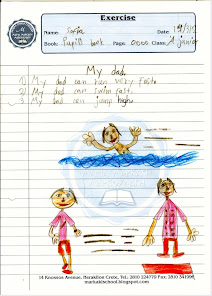 Exercise
Name: Sofia Date: 
Book: Pupil's book Page: Class: A junior
My dad
1) My dad can run very fast.
2) My dad can swim fast.
3) My dad can jump high.
14 Knossou Avenue, Heraklion Crete, Tel.: 2810 324779 Fax: 2810 341996
markakischool.blogspot.com